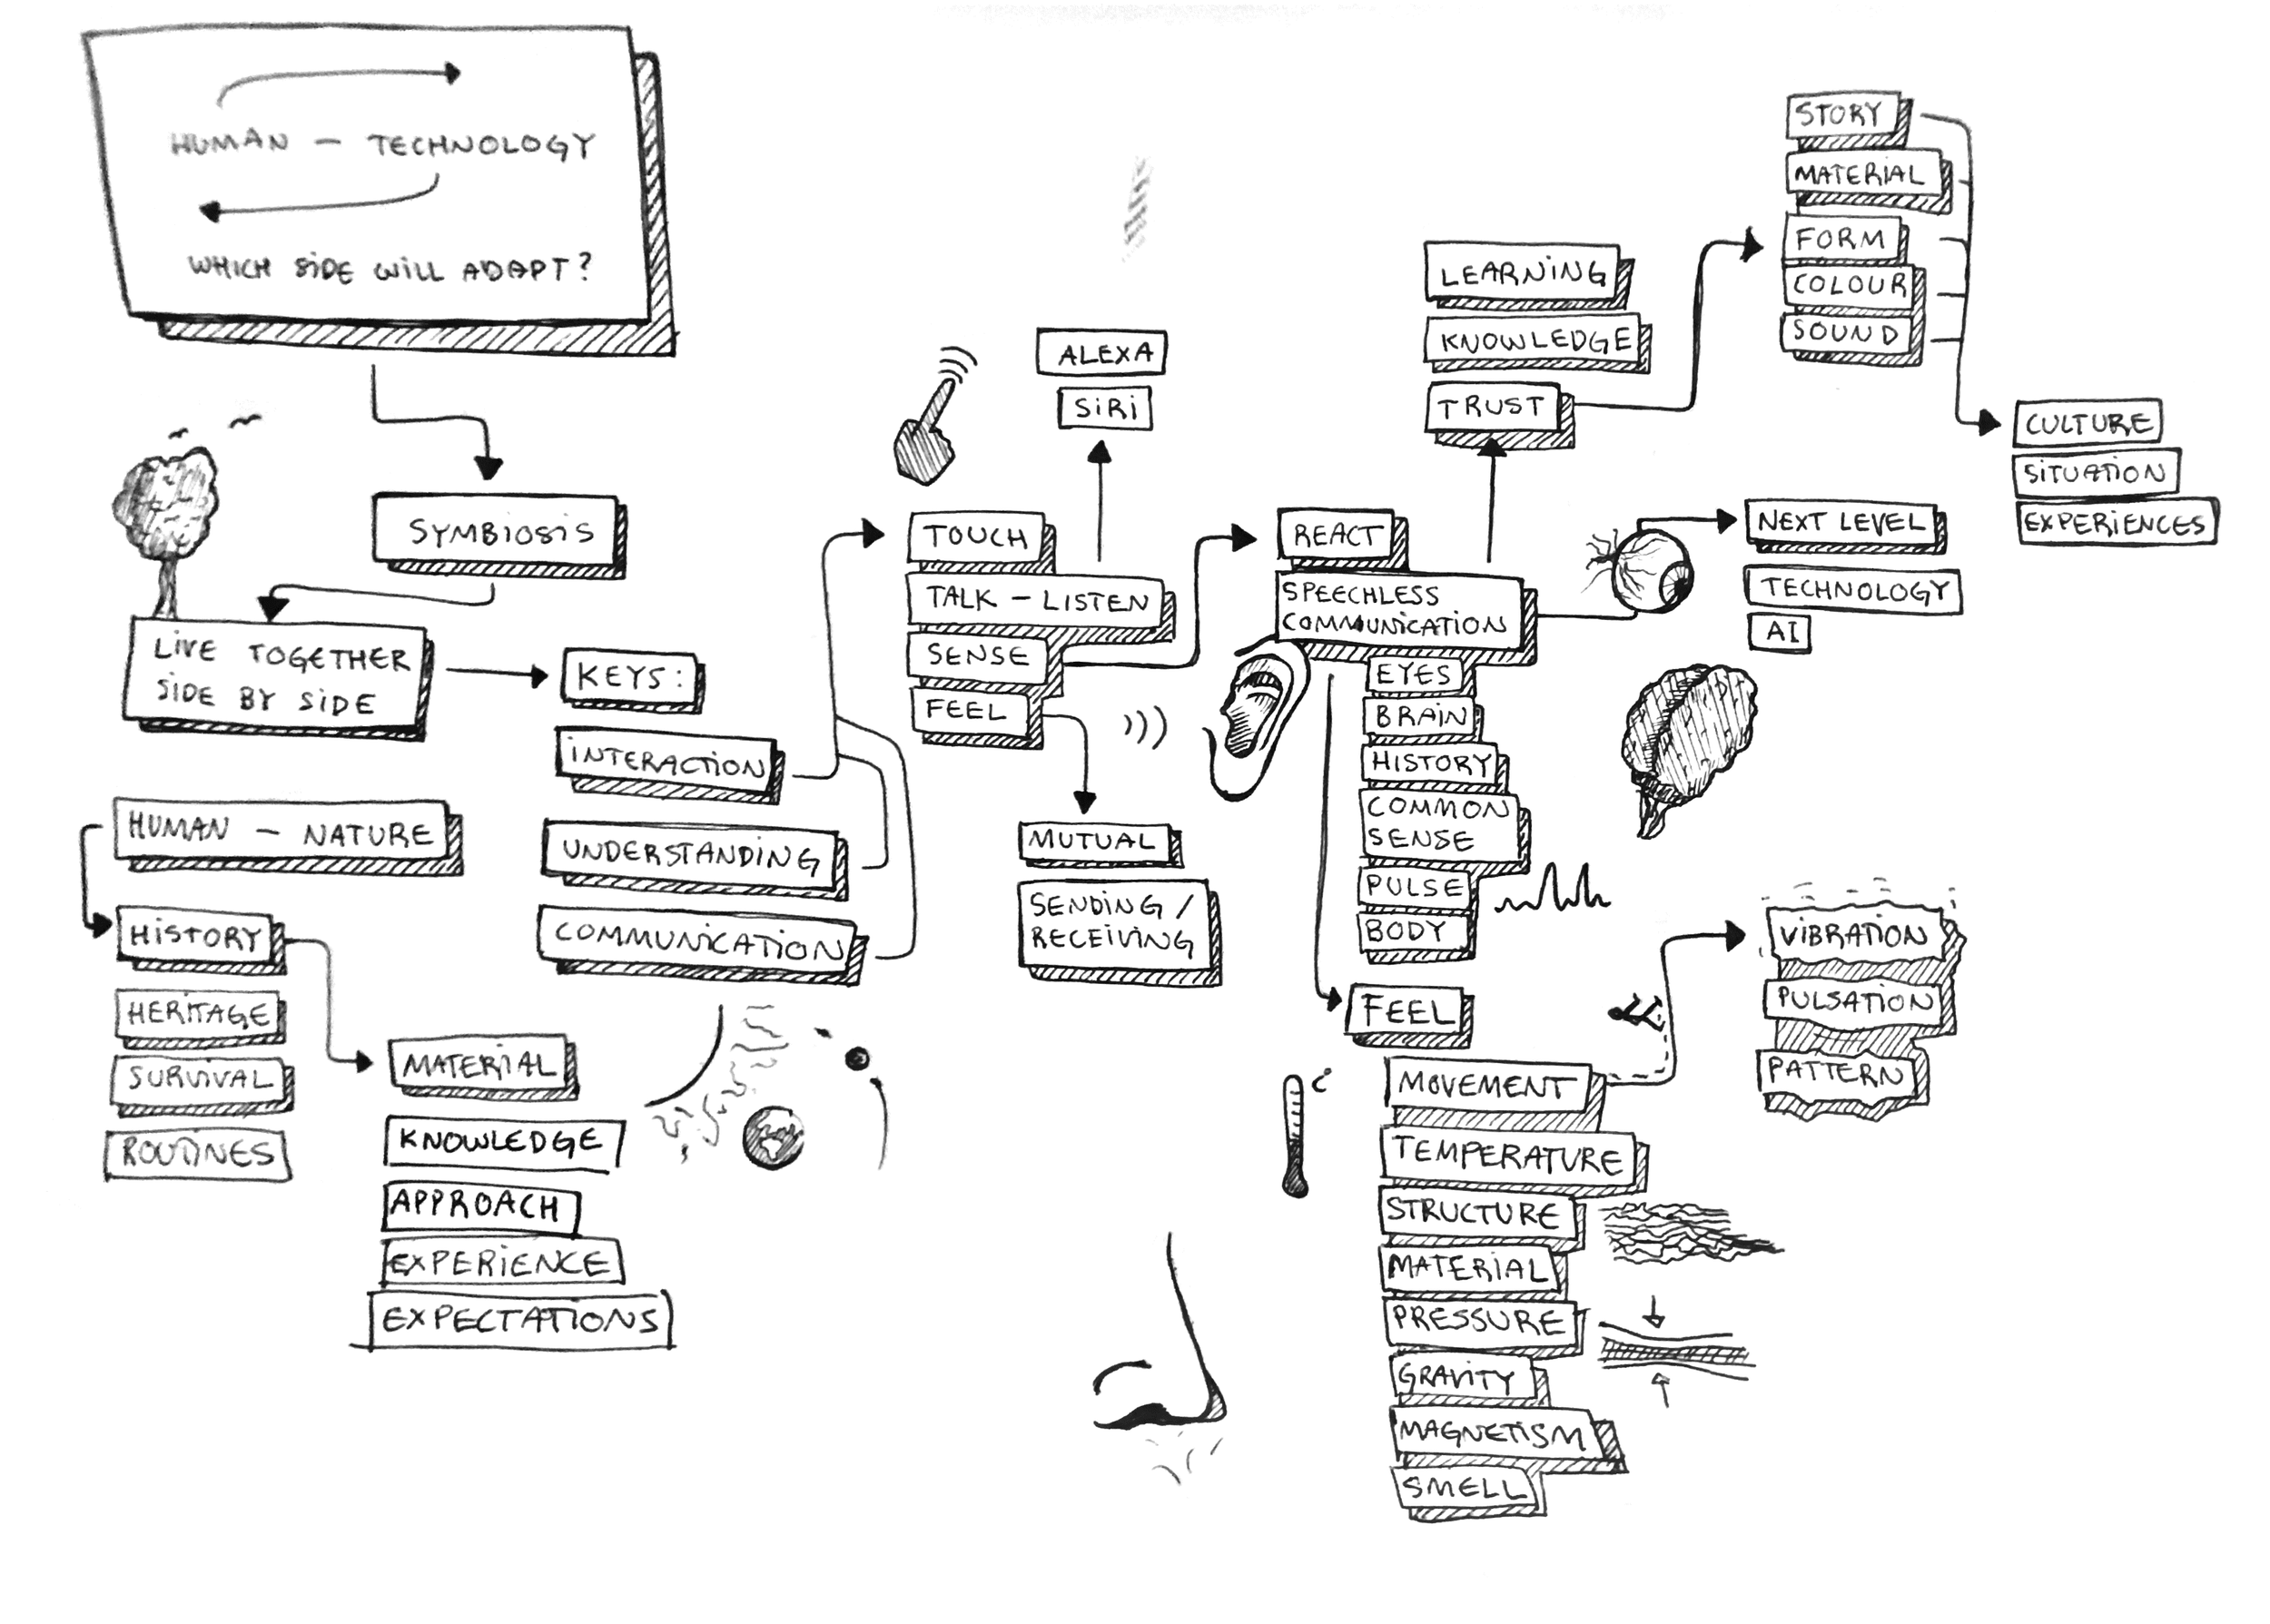 HUMAN – TECHNOLOGY
WHICH SIDE WILL ADAPT?
SYMBIOSIS
LIVE TOGETHER
SIDE BY SIDE
HUMAN – NATURE
HISTORY
HERITAGE
SURVIVAL
ROUTINES
MATERIAL
KNOWLEDGE
APPROACH
EXPERIENCE
EXPECTATIONS
KEYS:
INTERACTION
UNDERSTANDING
COMMUNICATION
TOUCH
TALK – LISTEN
SENSE
FEEL
ALEXA
SIRI
MUTUAL
SENDING /
RECEIVING
REACT
SPEECHLESS
COMMUNICATION
EYES
BRAIN
HISTORY
COMMON
SENSE
PULSE
BODY
LEARNING
KNOWLEDGE
TRUST
STORY
MATERIAL
FORM
COLOUR
SOUND
CULTURE
SITUATION
EXPERIENCES
NEXT LEVEL
TECHNOLOGY
AI
FEEL
MOVEMENT
TEMPERATURE
STRUCTURE
MATERIAL
PRESSURE
GRAVITY
MAGNETISM
SMELL
VIBRATION
PULSATION
PATTERN